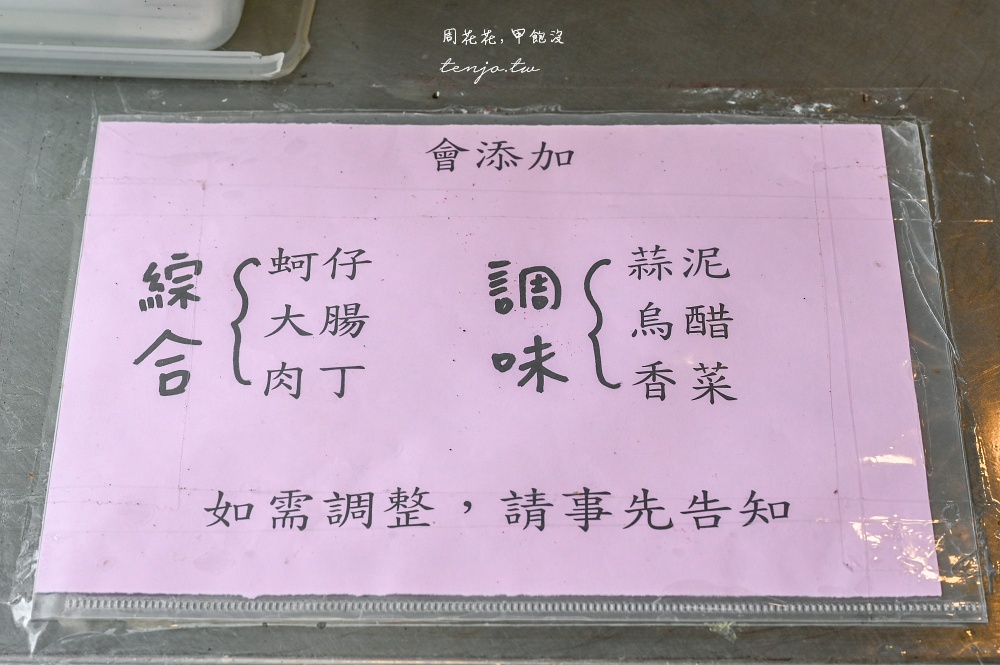 周花花，甲飽沒
tenjo.tw
會添加
綜合
蚵仔
大腸
肉丁
調味
蒜泥
烏醋
香菜
如需調整，請事先告知